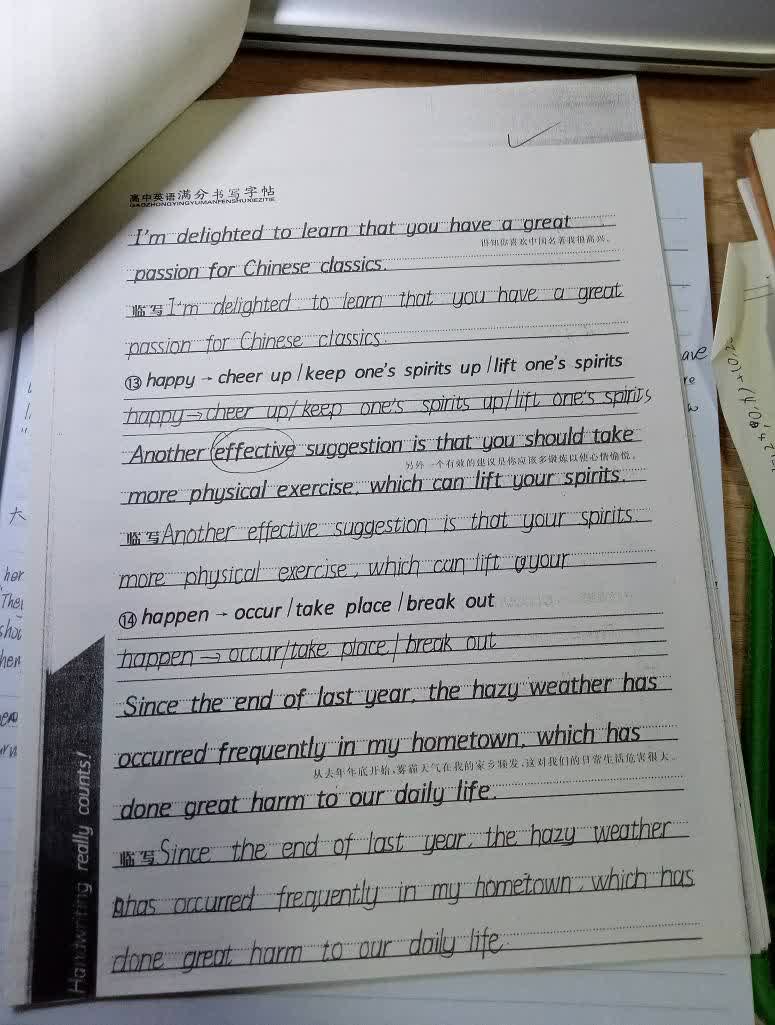 高中英语满分书写字帖
GAOZHONGYINGYUMANFENSHUXIEZITIE
I'm delighted to learn that you have a great
得知你喜欢中国名著我很高兴。
passion for Chinese classics.
临写 I'm delighted to learn that you have a great
passion for Chinese classics.
⑬ happy → cheer up / keep one's spirits up / lift one's spirits
happy → cheer up/ keep one's spirits up/ lift one's spirits
Another effective suggestion is that you should take
另外一个有效的建议是你应该多锻炼以使心情愉悦。
more physical exercise, which can lift your spirits.
临写 Another effective suggestion is that your spirits.
more physical exercise, which can lift your
⑭ happen → occur / take place / break out
happen → occur/take place/ break out
Since the end of last year, the hazy weather has
occurred frequently in my hometown, which has
从去年年底开始,雾霾天气在我的家乡频发,这对我们的日常生活危害很大。
done great harm to our daily life.
临写 Since the end of last year, the hazy weather
has occurred frequently in my hometown, which has
done great harm to our daily life.
Handwriting really counts!
ave
re
大
her
They
shou